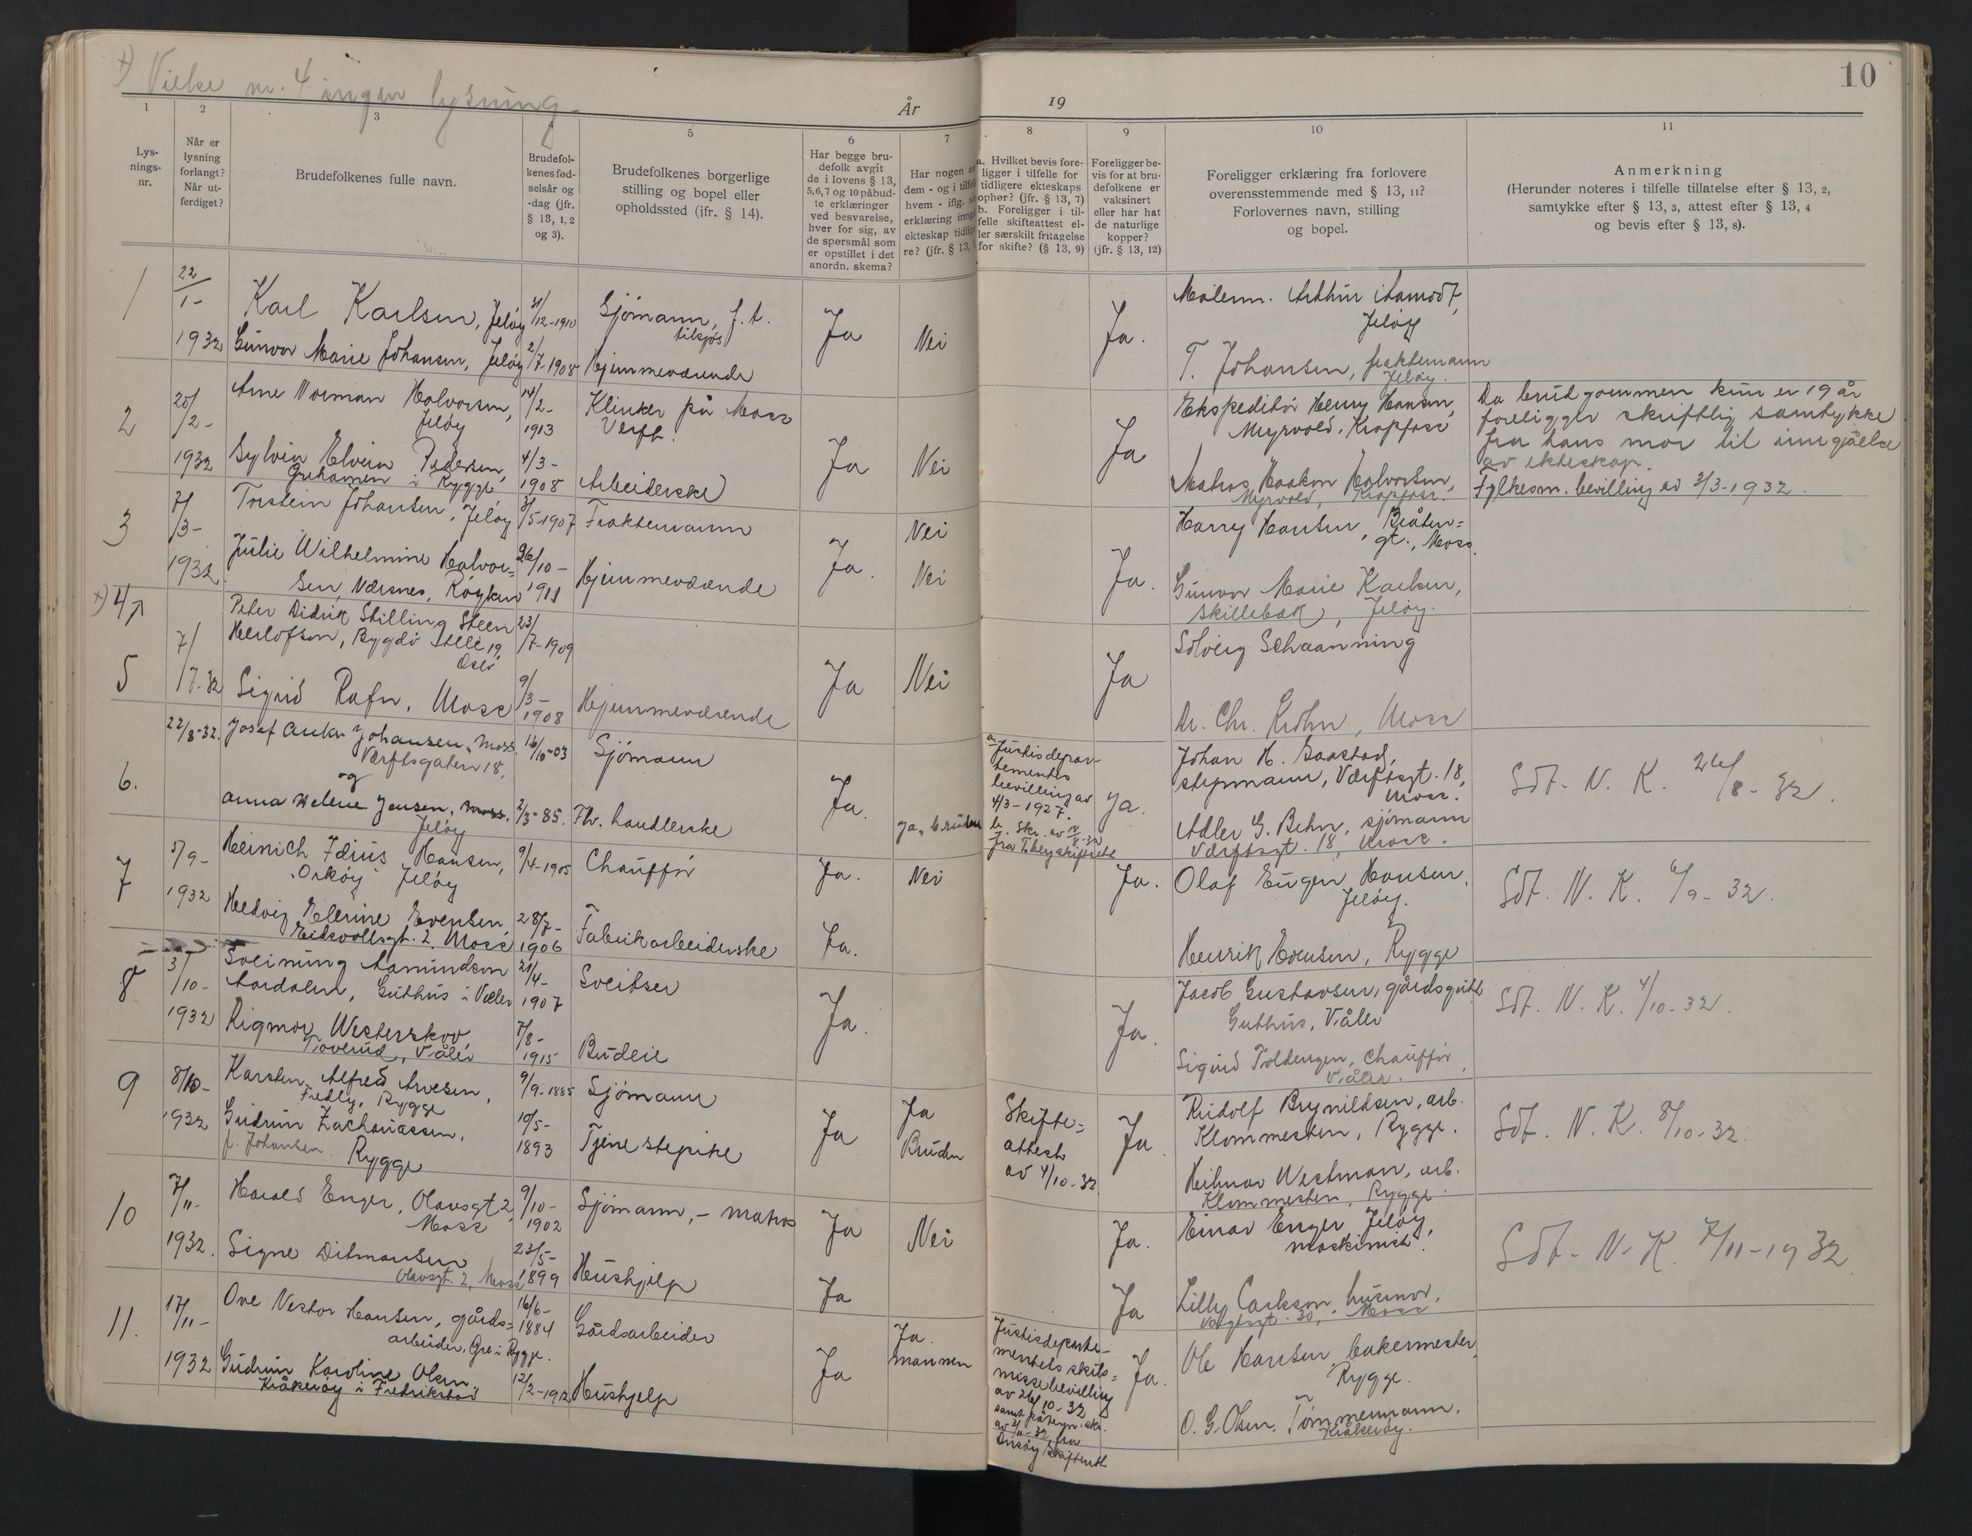 +) Vielse nr. 4 ingen lysning
10
År
19
1
2
3
4
5
6
7
8
9
10
11
Lys-
nings-
nr.
Når er
lysning
forlangt?
Når ut-
ferdiget?
Brudefolkenes fulle navn.
Brudefol-
kenes fød-
selsår og
-dag (jfr.
§ 13, 1, 2
og 3).
Brudefolkenes borgerlige
stilling og bopel eller
opholdssted (ifr. § 14).
Har begge bru-
defolk avgit
de i lovens § 13,
5,6,7 og 10 påbud-
te erklæringer
ved besvarelse,
hver for sig, av
de spørsmål som
er opstillet i det
anordn. skema?
Har nogen av
dem - og i tilfelle
hvem - iflg. sin
erklæring inngå
ekteskap tidlige
re? (jfr. § 13,
a. Hvilket bevis fore-
ligger i tilfelle for
tidligere ekteskaps
ophør? (jfr. § 13, 7)
b. Foreligger i til-
felle skifteattest el-
ler særskilt fritagelse
for skifte? (§ 13, 9)
Foreligger be-
vis for at bru-
defolkene er
vaksinert
eller har hat
de naturlige
kopper?
(jfr. § 13, 12)
Foreligger erklæring fra forlovere
overensstemmende med § 13, 11?
Forlovernes navn, stilling
og bopel.
Anmerkning
(Herunder noteres i tilfelle tillatelse efter § 13, 2,
samtykke efter § 13, 3, attest efter § 13, 4
og bevis efter § 13, 8).
1
22/1-
1932
Karl Karlsen, Jeløy
31/12-1910
Sjømann, f. t.
tilsjøs
Gunvor Marie Johansen, Jeløy
2/7-1908
Hjemmeværende
Ja
Nei
Ja.
Malerm. Arthur Aamodt,
Jeløy
T. Johansen, fraktemann
Jeløy.
2
20/2-
1932
Arne Norman Halvorsen,
Jeløy
14/2-
1913
Klinker på Moss
Verft.
Sylvia Elvira Pedersen,
i Rygge
4/3-
1908
Arbeiderske
Ja
Nei
Ja
Ekspeditør Henry Hansen,
Myrvold, Krapfoss
Matros Haakon Halvorsen,
Myrvold, Krapfoss.
Da brudgommen kun er 19 år
foreligger skriftlig samtykke
fra hans mor til inngåelse
av ekteskap.
Fylkesm. bevilling av 3/3-1932.
3
7/3-
1932
Torstein Johansen, Jeløy
31/5-1907
Fraktemann
Julie Wilhelmine Halvor-
sen, Nærsnes, Røyken
26/10-
1911
Hjemmeværende
Ja.
Nei
Nei
Ja.
Harry Hansen, Bråten-
gt., Moss.
Gunvor Marie Karlsen,
Skillebæk, Jeløy.
+) 4
5
7/
17-32
Peter Didrik Stilling Steen
Herlofson, Bygdø 19,
Oslo
23/7-1909
Sigrid Rafn, Moss
9/3-
1908
Hjemmeværende
Ja
Nei
Ja
Solveig Schaanning
Dr. Chr. Krohn, Moss
6.
22/8-32.
Josef Anker Johansen, Moss.
Værftsgaten 18,
og
16/10-03
Sjømann
Anna Helene Jensen, Moss.
Jeløy
2/3-85.
Hv. handlerske
Ja.
Ja, bruden
a. Justisdepar-
tementes
bevilling av
4/3-1927.
b. Skr. av
fra
Ja.
Johan H. Saastad,
støpmann, Værftsgt. 18,
Moss.
Adler G. Behn, sjømann
Værftsgt. 18, Moss.
Sdt. N. K. 26/8-32.
7
5/9-
1932
Heinrich Idius Hansen,
"Orkøy" Jeløy
9/4-1905
Chauffør
Ja.
Nei
Hedvig Elerine Evensen,
Eidsvollsgt. 2, Moss
28/7-
1906
Fabrikarbeiderske
Ja.
Ja.
Olaf Eugen Hansen,
Jeløy.
Henrik Evensen, Rygge
Sdt. N. K. 6/9-32.
8
3/10-
1932
Sveinung Aamundson
Aardalen, Guthus i Våler
21/4-
1907
Sveitser
Rigmor Westerskov,
Toverud, Våler
7/8-
1915
Budeie
Ja.
Ja.
Jacob Gustavsen, gårdsgutt
Guthus, Våler
Sigurd Toldengen, Chauffør,
Våler.
Sdt. N. K. 4/10-32.
9
8/10-
1932
Karsten Alfred Arvesen,
Fredly, Rygge
9/9-1885
Sjømann
Gudrun Zachariassen,
f. Johansen. Rygge
10/5-
1893
Tjenestepike
Ja
Ja
Bruden
Skifte-
attest
av 4/10-32
Ja.
Rudolf Brynildsen, arb.
Klommesten, Rygge.
Hilmar Westman, arb.
Klommesten, Rygge.
Sdt. N. K. 8/10-32.
10
7/11-
1932.
Harald Enger, Olavsgt 2,
Moss
9/10-
1902
Sjømann, - matros
Ja
Nei
Signe Ditmansen
Olavsgt. 2, Moss
23/5-
1899
Hushjelp
Ja
Ja.
Einar Enger, Jeløy,
maskinist.
Ja
Lilly Carlson, husmor.
Vogtsgt. 30, Moss
Sdt. N. K. 7/11-1932.
11.
17/11-
1932
Ove Nestor Hansen, gårds-
arbeider, Gre i Rygge.
16/6-
1884
Gårdsarbeider
Gudrun Karoline Olsen
Kråkerøy i Fredrikstad
12/2-1912
Hushjelp
Ja
Ja.
mannen
Justisdeparte-
mentets skils-
missebevilling
av 26/10-32
samt
av 3/11-32 fra
Onsøy skifterett
Ja.
Ole Hansen, bakermester,
Rygge.
O. G. Olsen. Tømmermann.
Kråkerøy.